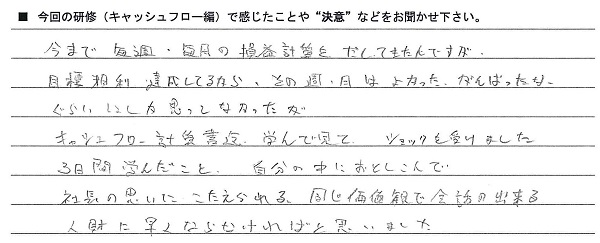 ■ 今回の研修（キャッシュフロー編）で感じたことや“決意”などをお聞かせ下さい。
今まで 毎週・毎月の 損益計算を だしてきたんですが、
目標粗利 達成してるなら、その週・月は よかった、がんばったな
ぐらいにしか思ってなかったが
キャッシュフロー計算書迄、学んで見て、ショックを受けました
3日間学んだこと、自分の中におとしこんで
社長の思いに こたえられる、同じ価値観で会話の出来る
人財に早くならなければと思いました